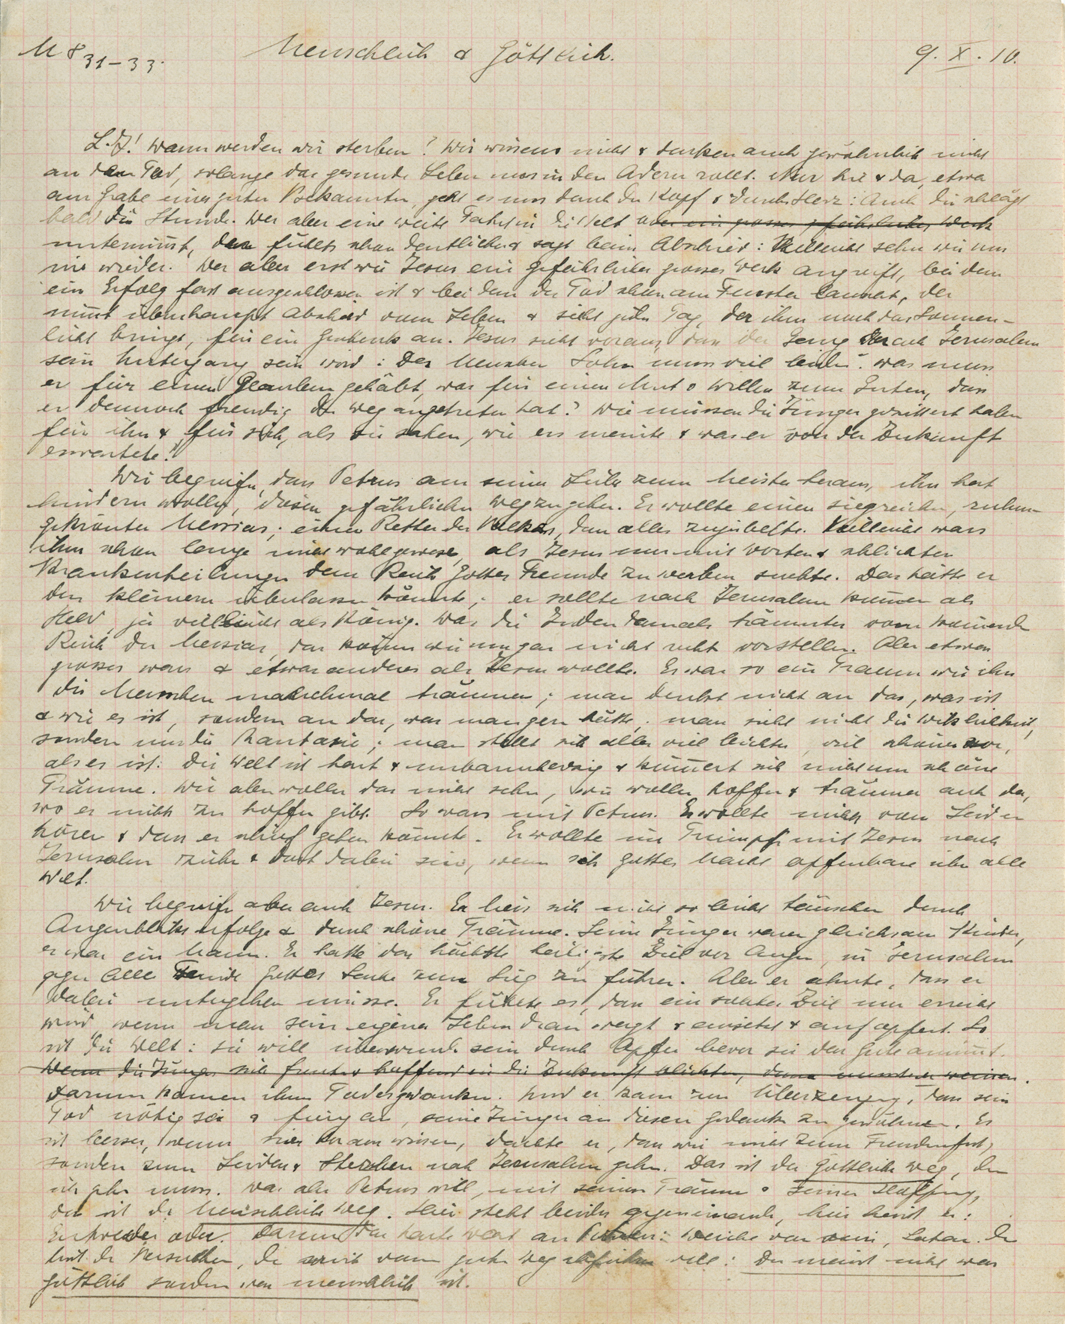 M 8 31–33. Menschlich & Göttlich. 9. X. 10.
L. Z! Wann werden wir sterben? Wir wissens nicht & denken auch gewöhnlich nicht
an den Tod, solange das gesunde Leben uns in den Adern rollt. Nur hie & da, etwa
am Grabe eines guten Bekannten, geht es uns durch den Kopf & durchs Herz: Auch dir schlägt
bald die Stunde. Wer aber eine weite Fahrt in die Welt oder ein grosses gefährliches Werk
unternimmt, der fühlts schon deutlicher & sagt beim Abschied: Vielleicht sehn wir uns
nie wieder. Wer aber erst wie Jesus ein gefährliches grosses Werk angreift, bei dem
ein Erfolg fast ausgeschlossen ist & bei dem der Tod schon am Fenster lauert, der
nimmt überhaupt Abschied vom Leben & sieht jeden Tag, der ihm noch das Sonnen-
licht bringt, für ein Geschenk an. Jesus sieht voraus, dass der Gang nach Jerusalem
sein Untergang sein wird: Des Menschen Sohn muss viel leiden. Was muss
er für einen Glauben gehabt, was für einen Mut & Willen zum Guten, dass
er dennoch freudig den Weg angetreten hat? Wie müssen die Jünger gezittert haben
für ihn & für sich, als sie sahen, wie ers meinte & was er von der Zukunft
erwartete!
Wir begreifen, dass Petrus aus seiner Liebe zum Meister heraus, ihn hat
hindern wollen, diesen gefährlichen Weg zu gehen. Er wollte einen siegreichen, ruhm-
gekrönten Messias, einen Retter des Volkes, dem alles zujubelte. Vielleicht wars
ihm schon lange nicht wohl gewesen, als Jesus nur mit Worten & schlichten
Krankenheilungen dem Reich Gottes Freunde zu werben suchte. Das hätte er
den kleinern überlassen können; er sollte nach Jerusalem kommen als
Held, ja vielleicht als König. Was die Juden damals träumten vom kommenden
Reich des Messias, das können wir uns gar nicht recht vorstellen. Aber etwas
grosses wars & etwas anderes als Jesus wollte. Es war so ein Traum wie ihn
die Menschen manchmal träumen; man denkt nicht an das, was ist
& wie es ist, sondern an das, was man gern hätte, man sieht nicht die Wirklichkeit,
sondern nur die Fantasie; man stellt sich alles viel leichter, viel schöner vor,
als es ist. Die Welt ist hart & unbarmherzig & kümmert sich nicht um schöne
Träume. Wir aber wollen das nicht sehn, wir wollen hoffen & träumen auch da,
wo es nichts zu hoffen gibt. So wars mit Petrus. Er wollte nichts vom Leiden
hören & dass es schief gehen könnte. Er wollte im Triumpf mit Jesus nach
Jerusalem ziehn & dort dabei sein, wenn sich Gottes Macht offenbare über alle
Welt.
Wir begreifen aber auch Jesus. Er liess sich nicht so leicht täuschen durch
Augenblickserfolge & durch schöne Träume. Seine Jünger waren gleichsam Kinder,
er war ein Mann. Er hatte das höchste heiligste Ziel vor Augen, in Jerusalem
gegen alle Feinde Gottes Sache zum Sieg zu führen. Aber er ahnte, dass er
dabei untergehen müsse. Er fühlte es, dass ein solches Ziel nur erreicht
wird, wenn man sein eigenes Leben dran wagt & einsetzt & aufopfert. So
ist die Welt: sie will überwunden sein durch Opfer bevor sie das Gute annimmt.
Wenn die Jünger sich freuten & hoffend in die Zukunft blickten, dann musste er weinen.
Darum kamen ihm Todesgedanken. Und er kam zur Überzeugung, dass sein
Tod nötig sei & fing an, seine Jünger an diesen Gedanken zu gewöhnen. Es
ist besser, wenn sies voraus wissen, dachte er, dass wir nicht zum Freudenfest,
sondern zum Leiden & Sterben nach Jerusalem gehn. Das ist der göttliche Weg, den
ich gehn muss. Was aber Petrus will, mit seinen Träumen & seiner Hoffnung,
das ist der menschliche Weg. Hier steht beides gegeneinander, hier heisst es:
Entweder oder. Darum das harte Wort an Petrus: Weiche von mir, Satan. Du
bist der Versucher, der mich vom guten Weg abführen will: Du meinst nicht was
göttlich sondern was menschlich ist.